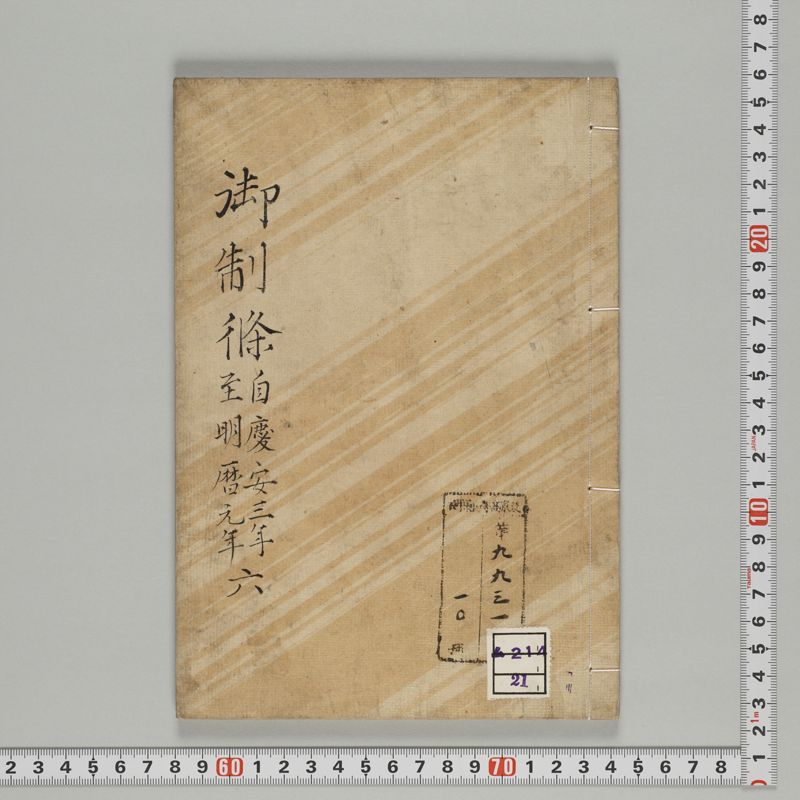 御制條
自慶安三年
至明暦元年
六
第九九三一
一〇冊
21
2 3 4 5 6 7 8 9 60 1 2 3 4 5 6 7 8 9 70 1 2 3 4 5 6 7 8
8 7 6 5 4 3 2 1 20 9 8 7 6 5 4 3 2 1 10 9 8 7 6 5 4 3 2 1
JAPAN
1m